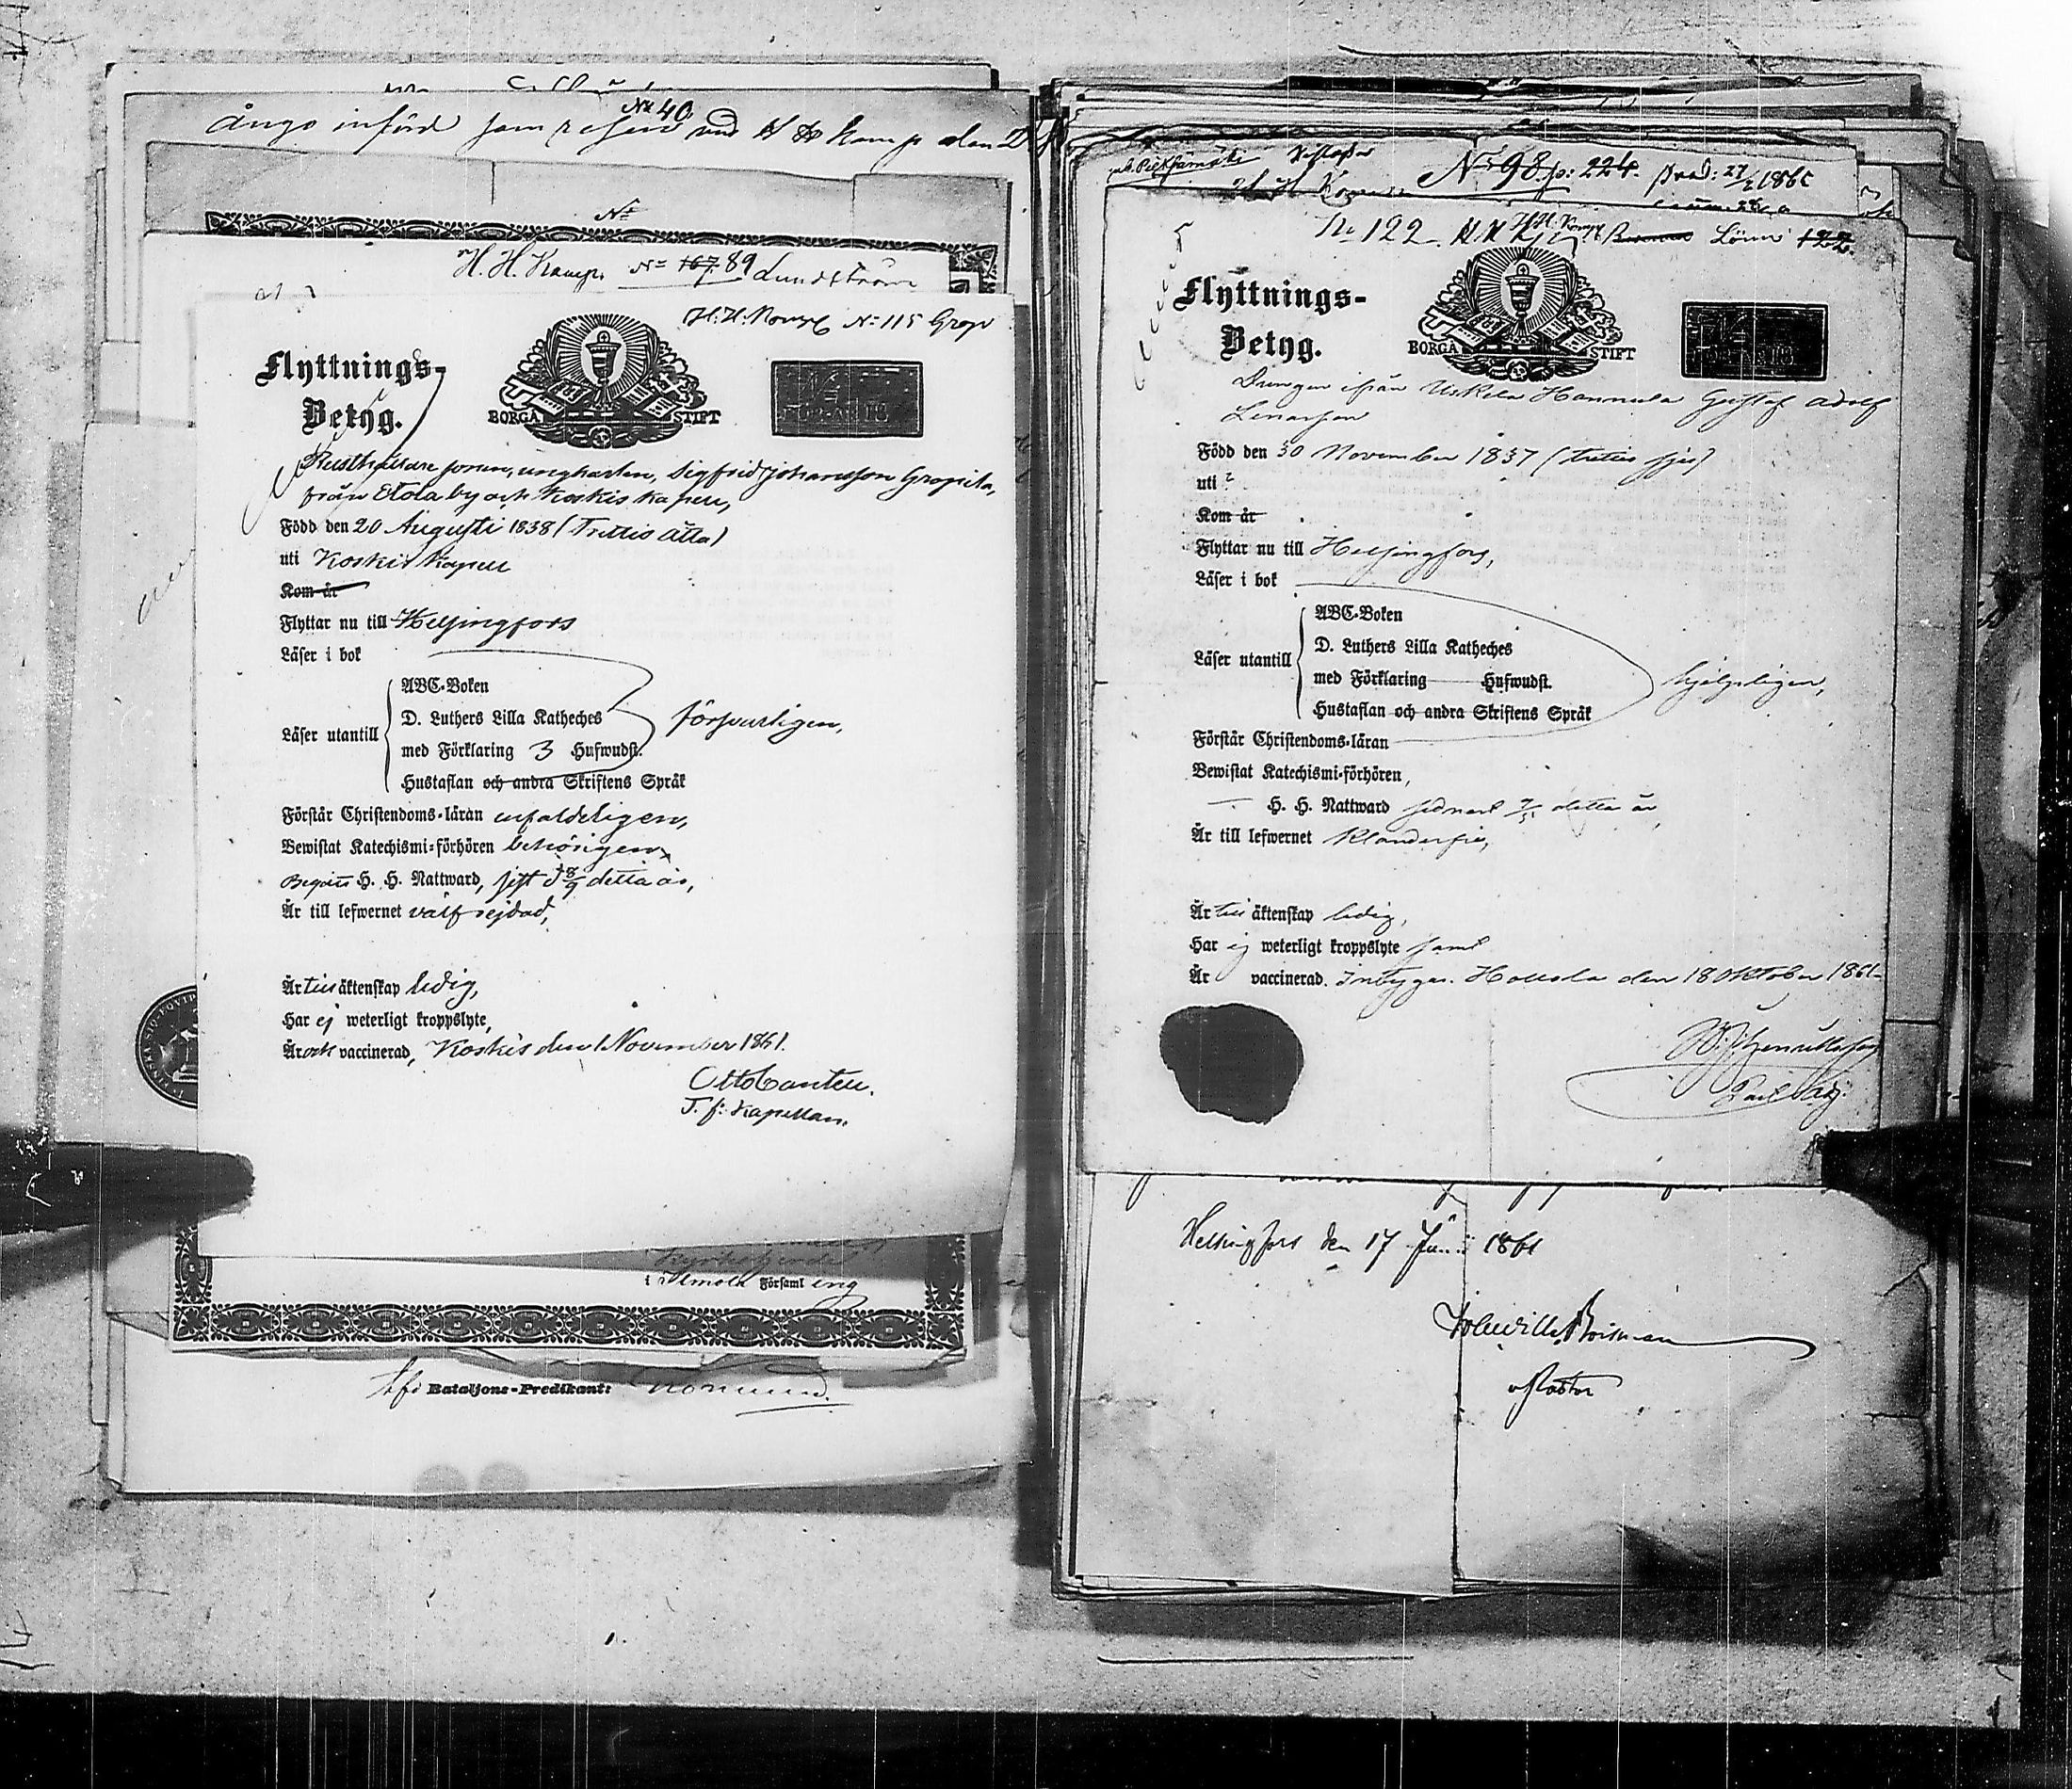 No 40
ångo införd som resen vid H H Kamp den
No
H. H. Kamp. No 167. 89 Lundström
H. H. Komp No 115 Grop
Flyttnings-
Betyg.
BORGÅ STIFT
Rusthållare sonen, ungkarlen, Sigfrid Johansson Gropila,
från Etola by och Koskis kapell,
Född den 20 Augusti 1838 (Trettio åtta)
uti Koskis kapell
Kom år
Flyttar nu till Helsingfors
Läser i bok
Läser utantill
ABC-Boken
D. Luthers Lilla Katheches
med Förklaring 3 Hufwudst.
Hustaflan och andra Skriftens Språk
försvarligen,
Förstår Christendoms-läran enfaldeligen,
Bewistat Katechismi-förhören behörigen
Begått H. H. Nattward, sist d 8/9 detta år,
Är till lefwernet välfrejdad,
Är till äktenskap ledig,
Har ej weterligt kroppslyte,
Är och vaccinerad, Koskis den 1 November 1861.
Otto
T. f. Kapellan.
i Ilmola Församl ing
Bataljons-Predikant:
No 98 p: 224. 1865
No 122 H. H. Komp
Flyttnings-
Betyg.
BORGÅ STIFT
Drengen ifrån Uskila Hannula Gustaf Adolf
Lenarsson
Född den 30 November 1837 (trettio sju)
uti ?
Kom år
Flyttar nu till Helsingfors,
Läser i bok
Läser utantill
ABC-Boken
D. Luthers Lilla Katheches
med Förklaring Hufwudst.
Hustaflan och andra Skriftens Språk
hjelpligen,
Förstår Christendoms-läran
Bewistat Katechismi-förhören,
H. H. Nattward sednast detta år
Är till lefwernet klanderfri,
Är till äktenskap ledig,
Har ej weterligt kroppslyte samt
Är vaccinerad. Intygar. Hollola den 18 Oktober 1861
Past. Adj.
Helsingfors den 17 Juni 1861
Boisman
v Pastor